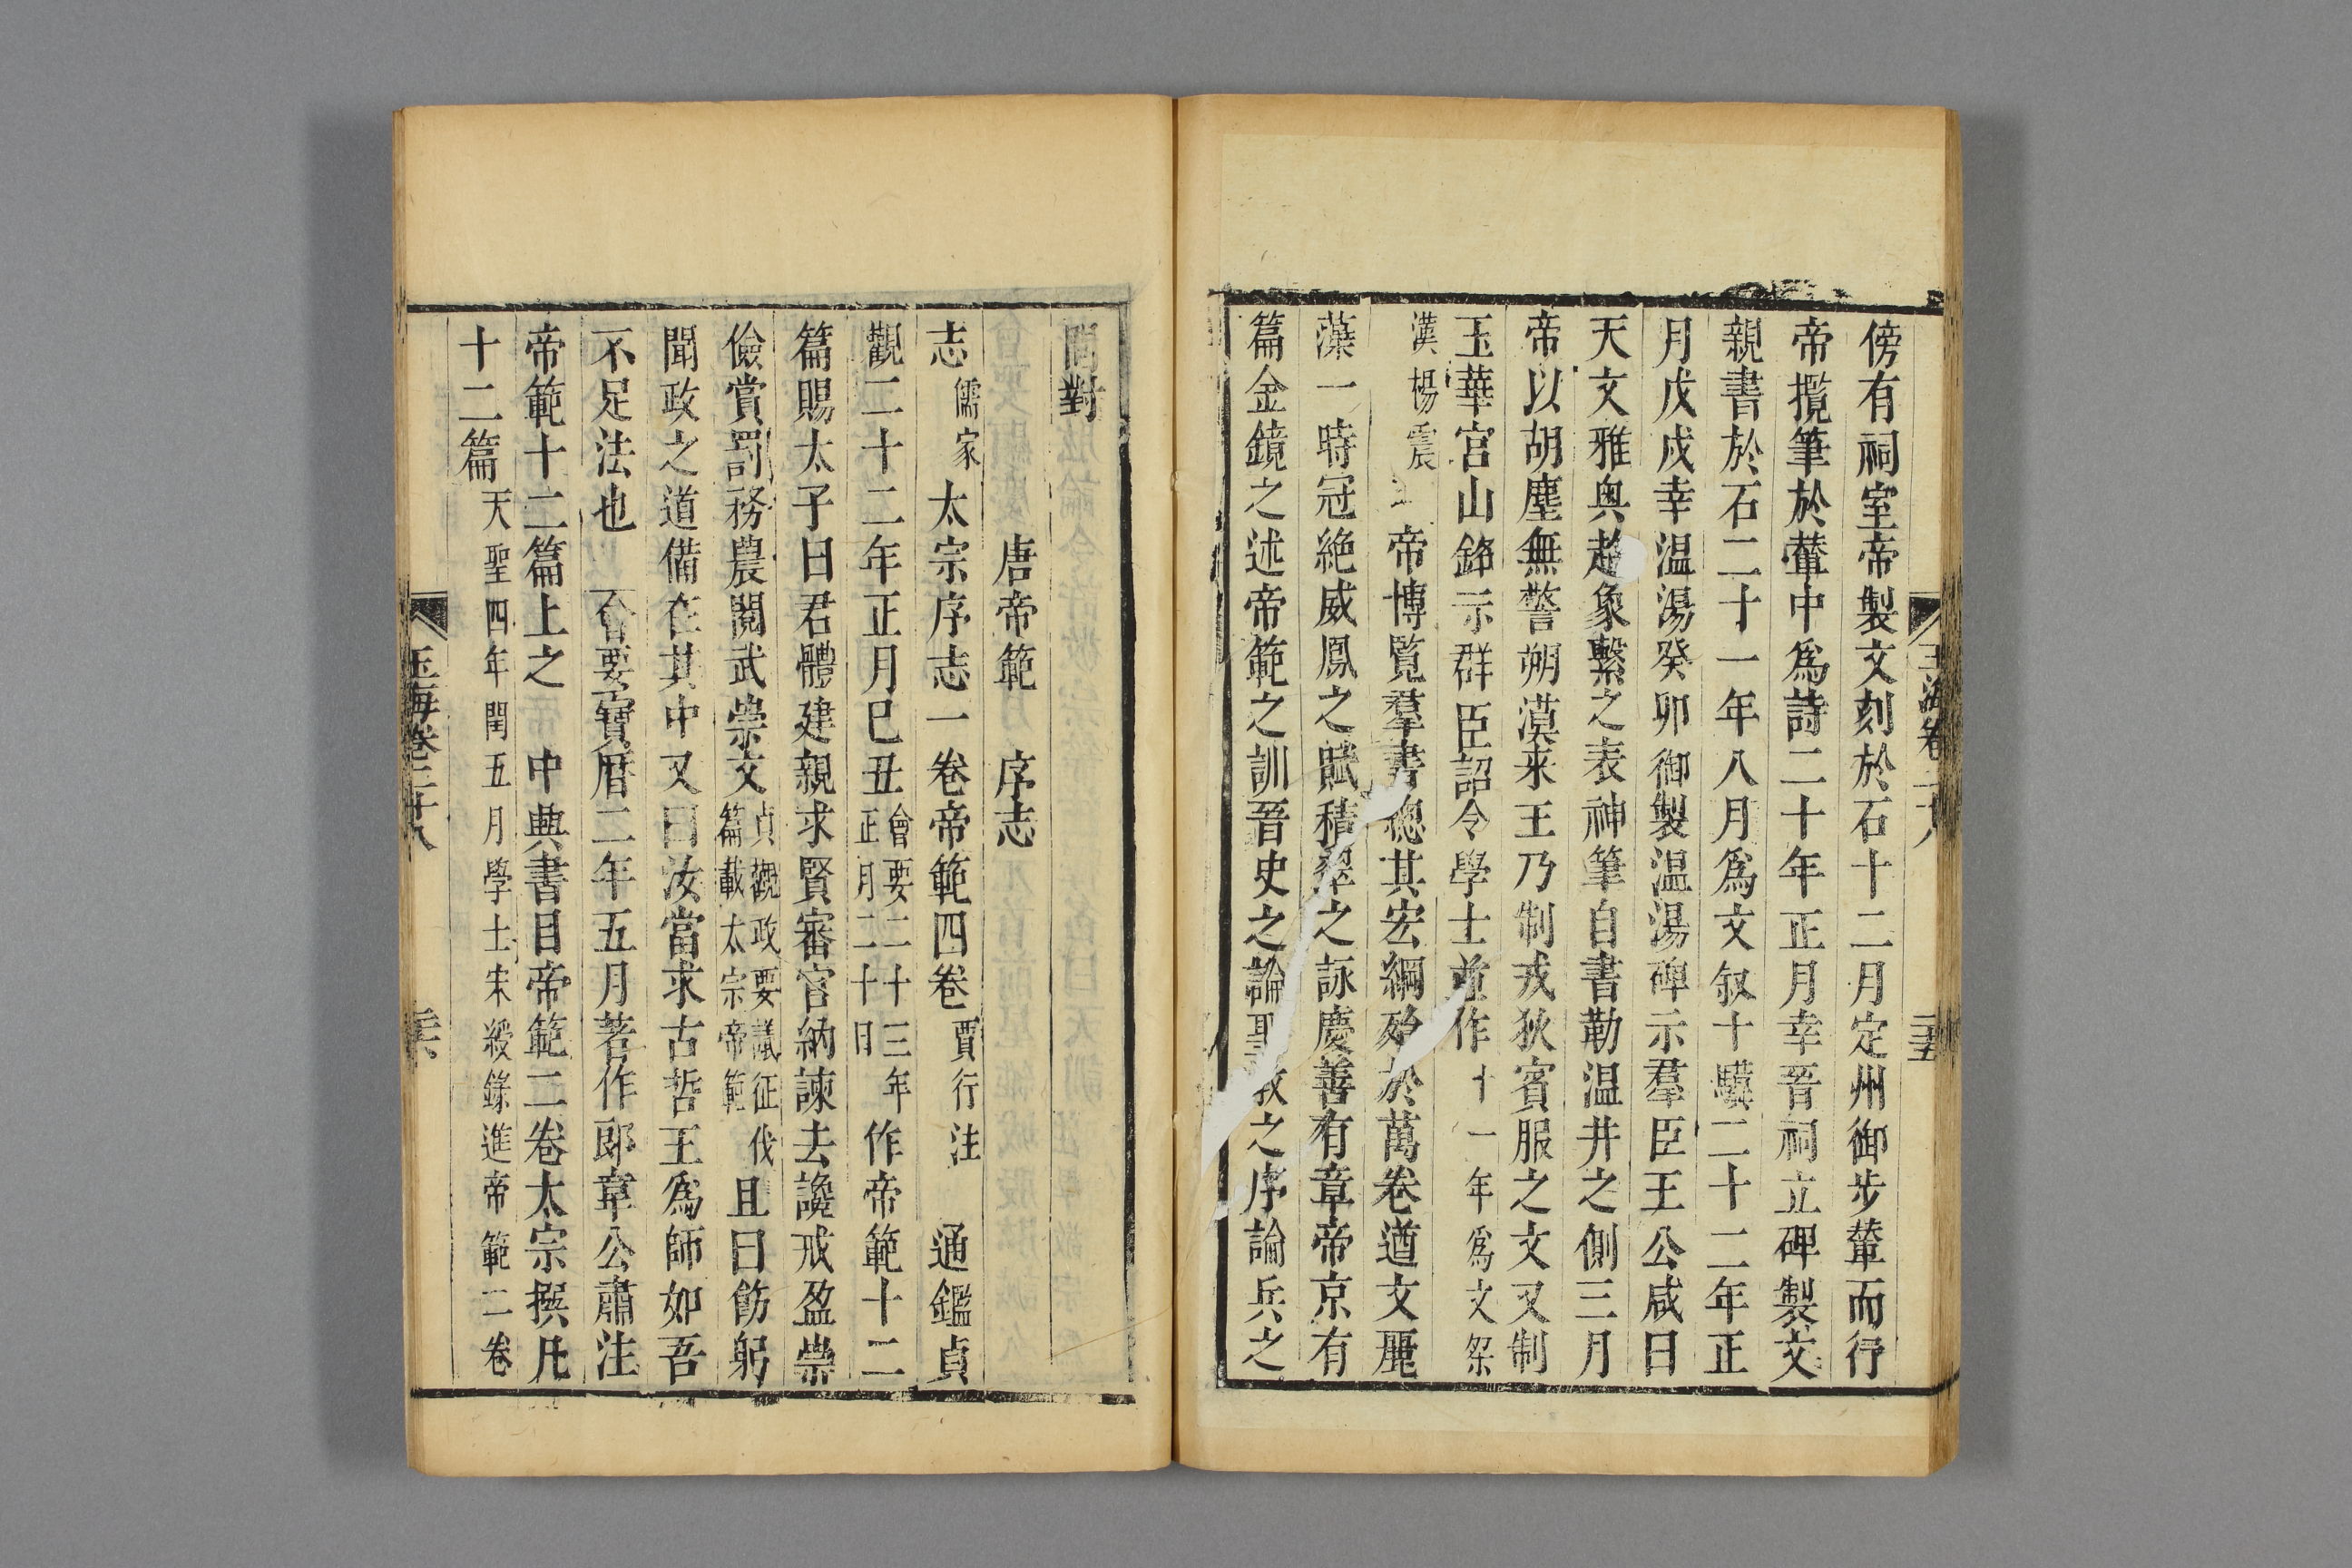 傍有祠室帝製文刻於石十二月定州御步輦而行
帝攬筆於輦中爲詩二十年正月幸晉祠立碑製文
親書於石二十一年八月爲文叙十驥二十二年正
月戊戌幸温湯癸卯御製温湯碑示羣臣王公咸曰
天文雅奥趍象繫之表神筆自書勒温井之側三月
帝以胡塵無警朔漠来王乃制戎狄賓服之文又制
玉華宮山銘示群臣詔令學士並作十一年爲文祭
漢楊震 帝博覧羣書總其宏綱殆於萬卷遒文麗
藻一時冠絶威鳳之賦積翠之詠慶善有章帝京有
篇金鏡之述帝範之訓晉史之論聖教之序論兵之
玉海卷二十八 二十五
問對
唐帝範 序志
志儒家太宗序志一卷帝範四卷賈行注 通鑑貞
觀二十二年正月己丑會要二十三年正月二十日作帝範十二
篇賜太子曰君體建親求賢審官納諫去讒戒盈崇
儉賞罰務農閱武崇文貞觀政要議征伐篇載太宗帝範且曰飭躬
聞政之道備在其中又曰汝當求古哲王爲師如吾
不足法也 會要寶暦二年五月著作郎韋公肅注
帝範十二篇上之 中興書目帝範二卷太宗撰凡
十二篇天聖四年閏五月學士宋綬錄進帝範二卷
玉海卷二十八 二十六